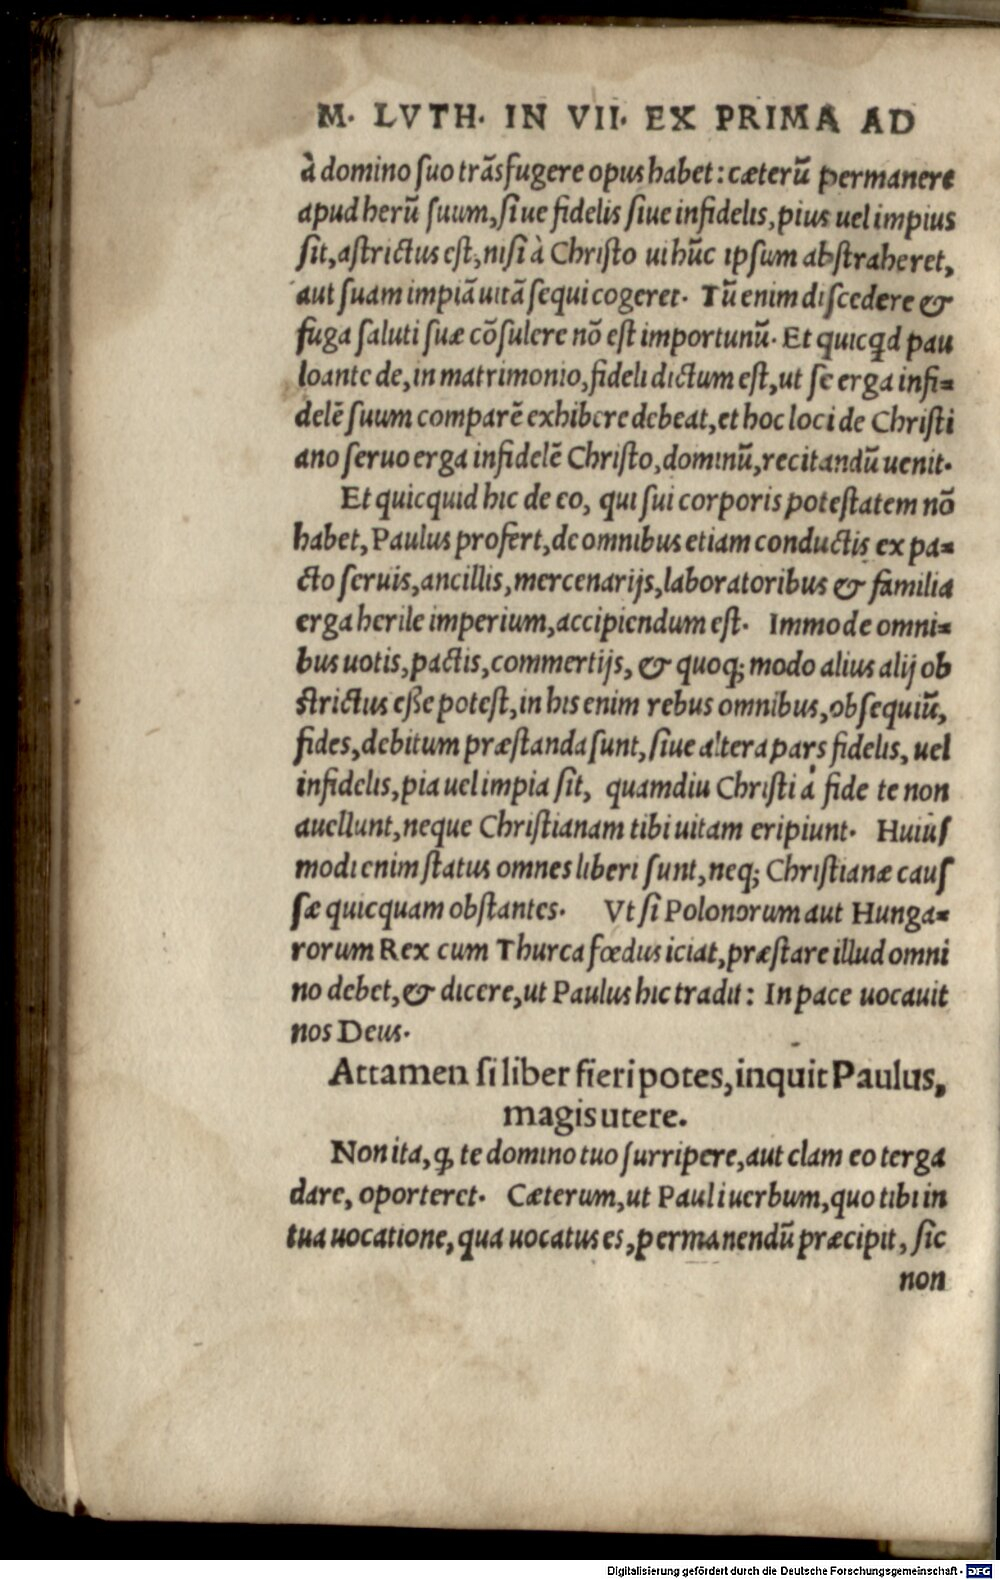 M. LVTH. IN VII. EX PRIMA AD
à domino ſuo trãsfugere opus habet: cæterũ permanere
apud herũ ſuum, ſiue fidelis ſiue infidelis, pius uel impius
ſit, aſtrictus eſt, niſi à Christo ui hũc ipſum abſtraheret,
aut ſuam impiã uitã ſequi cogeret. Tũ enim diſcedere &
fuga ſaluti ſuæ cõſulere nõ eſt importunũ. Et quicqd pau
lo ante de, in matrimonio, fideli dictum eſt, ut ſe erga infi=
delẽ ſuum comparẽ exhibere debeat, et hoc loci de Chriſti
ano ſeruo erga infidelẽ Chriſto, dominũ, recitandũ uenit.
Et quicquid hic de eo, qui ſui corporis poteſtatem nõ
habet, Paulus profert, de omnibus etiam conductis ex pa=
cto ſeruis, ancillis, mercenarijs, laboratoribus & familia
erga herile imperium, accipiendum eſt. Immo de omni=
bus uotis, pactis, commertijs, & quoq; modo alius alij ob
ſtrictus eſſe poteſt, in his enim rebus omnibus, obſequiũ,
fides, debitum præſtanda ſunt, ſiue altera pars fidelis, uel
infidelis, pia uel impia ſit, quamdiu Chriſti à fide te non
auellunt, neque Chriſtianam tibi uitam eripiunt. Huiuſ
modi enim ſtatus omnes liberi ſunt, neq; Chriſtianæ cauſ
ſæ quicquam obſtantes. Vt ſi Polonorum aut Hunga=
rorum Rex cum Thurca fœdus iciat, præſtare illud omni
no debet, & dicere, ut Paulus hic tradit: In pace uocauit
nos Deus.
Attamen ſi liber fieri potes, inquit Paulus,
magis utere.
Non ita, ꝙ te domino tuo ſurripere, aut clam eo terga
dare, oporteret. Cæterum, ut Pauli uerbum, quo tibi in
tua uocatione, qua uocatus es, permanendũ præcipit, ſic
non
Digitalisierung gefördert durch die Deutsche Forschungsgemeinschaft - DFG